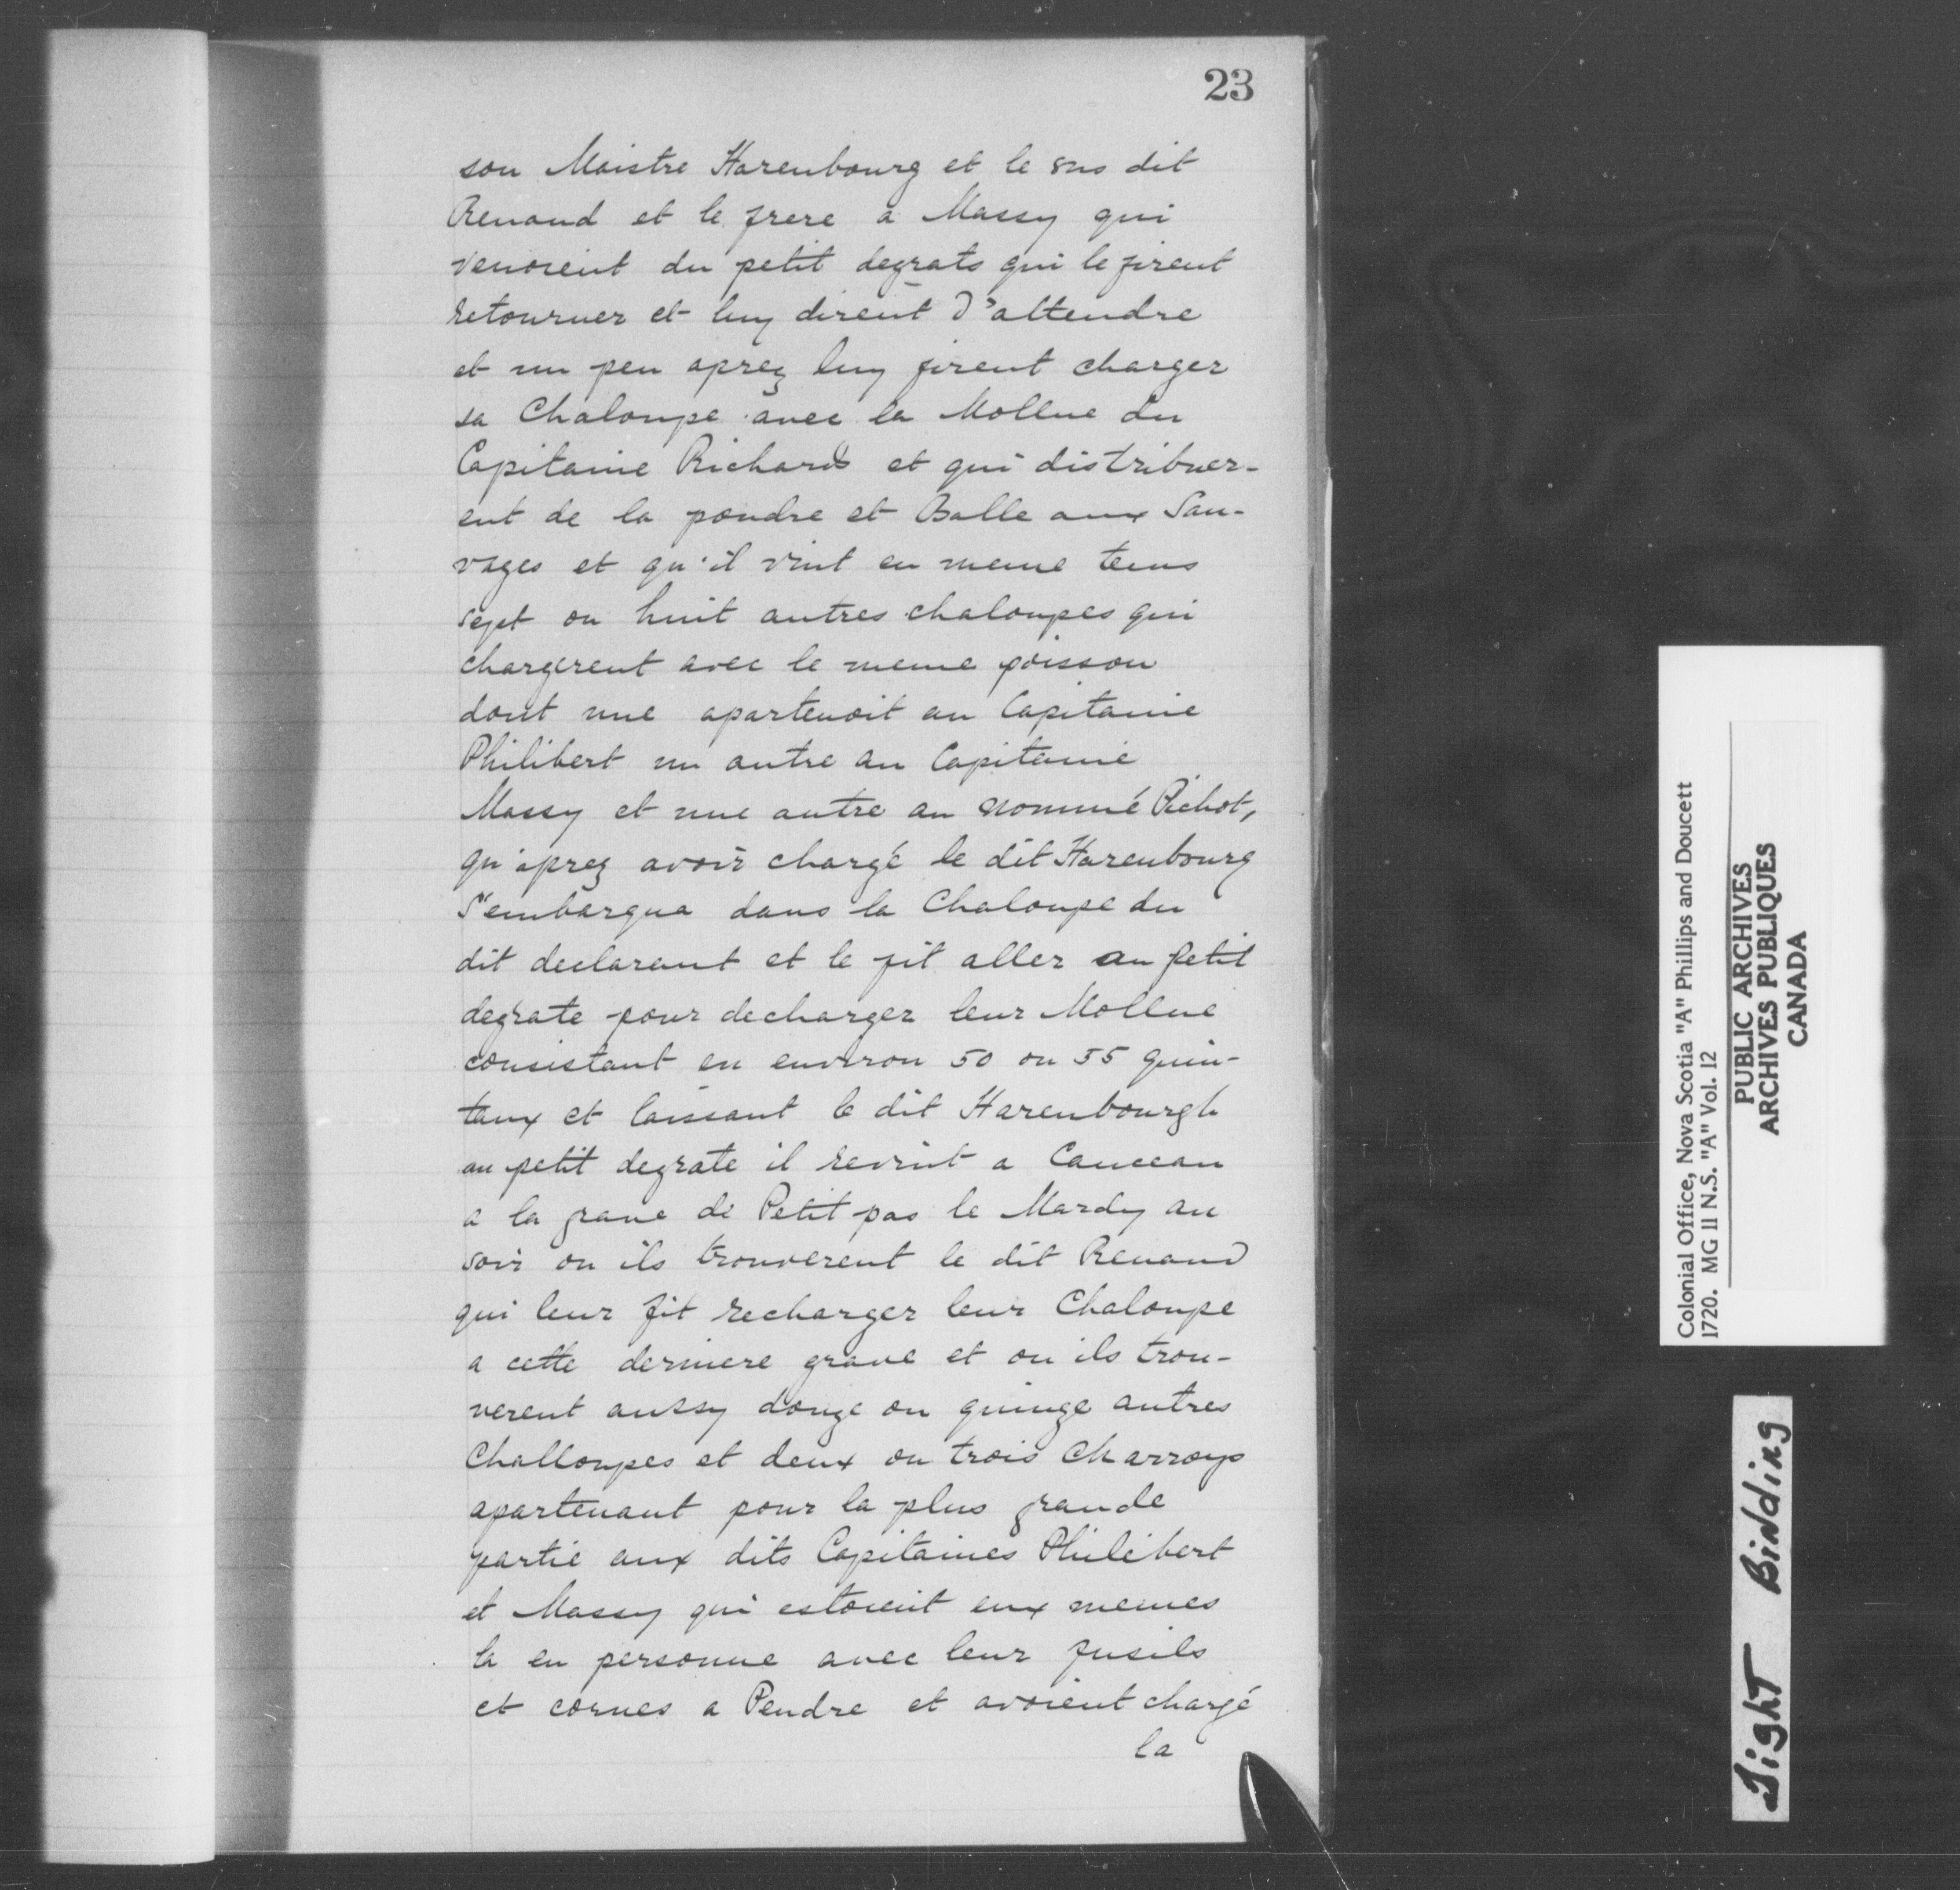 23
son Maistre Harenbourg et le sus dit
Renaud et le frere a Massy qui
venoient du petit degrats qui le firent
retourner et luy dirent d'attendre
et un peu aprez luy firent charger
sa Chaloupe avec la Mollue du
Capitaine Richards et qui distribuer-
ent de la poudre et Balle aux Sau-
vages et qu'il vint en meme tems
sept ou huit autres chaloupes qui
chargerent avec le meme poisson
dont une apartenoit au Capitaine
Philibert un autre au Capitaine
Massy et une autre au nommé Pichot,
qu'aprez avoir chargé le dit Harenbourg
s'embarqua dans la Chaloupe du
dit declarant et le fit aller au petit
degrate pour decharger leur Mollue
consistant en environ 50 ou 55 quin-
taux et laissant le dit Harenbourgh
au petit degrate il revint a Canceau
a la grave de Petit pas le Mardy au
soir ou ils trouverent le dit Renaud
qui leur fit recharger leur Chaloupe
a cette derniere grave et ou ils trou-
verent aussy douze ou quinze autres
Challoupes et deux ou trois Charroys
apartenant pour la plus grande
partie aux dits Capitaines Philibert
et Massy qui estoient eux memes
la en personne avec leur fusils
et cornes a Pendre et avoient chargé
la
Colonial Office, Nova Scotia "A" Phillips and Doucett
1720. MG 11 N.S. "A" Vol. 12
PUBLIC ARCHIVES
ARCHIVES PUBLIQUES
CANADA
Tight Binding